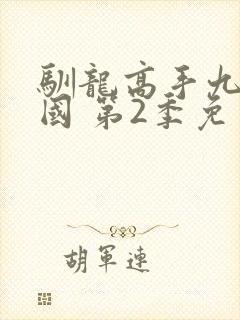 馴龍高手九
國 第2季免
胡軍連